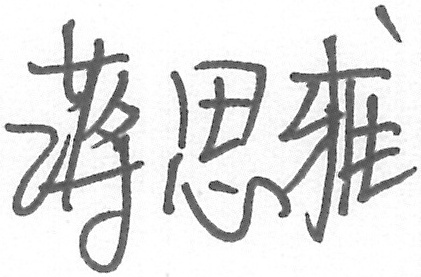 蒋思雅